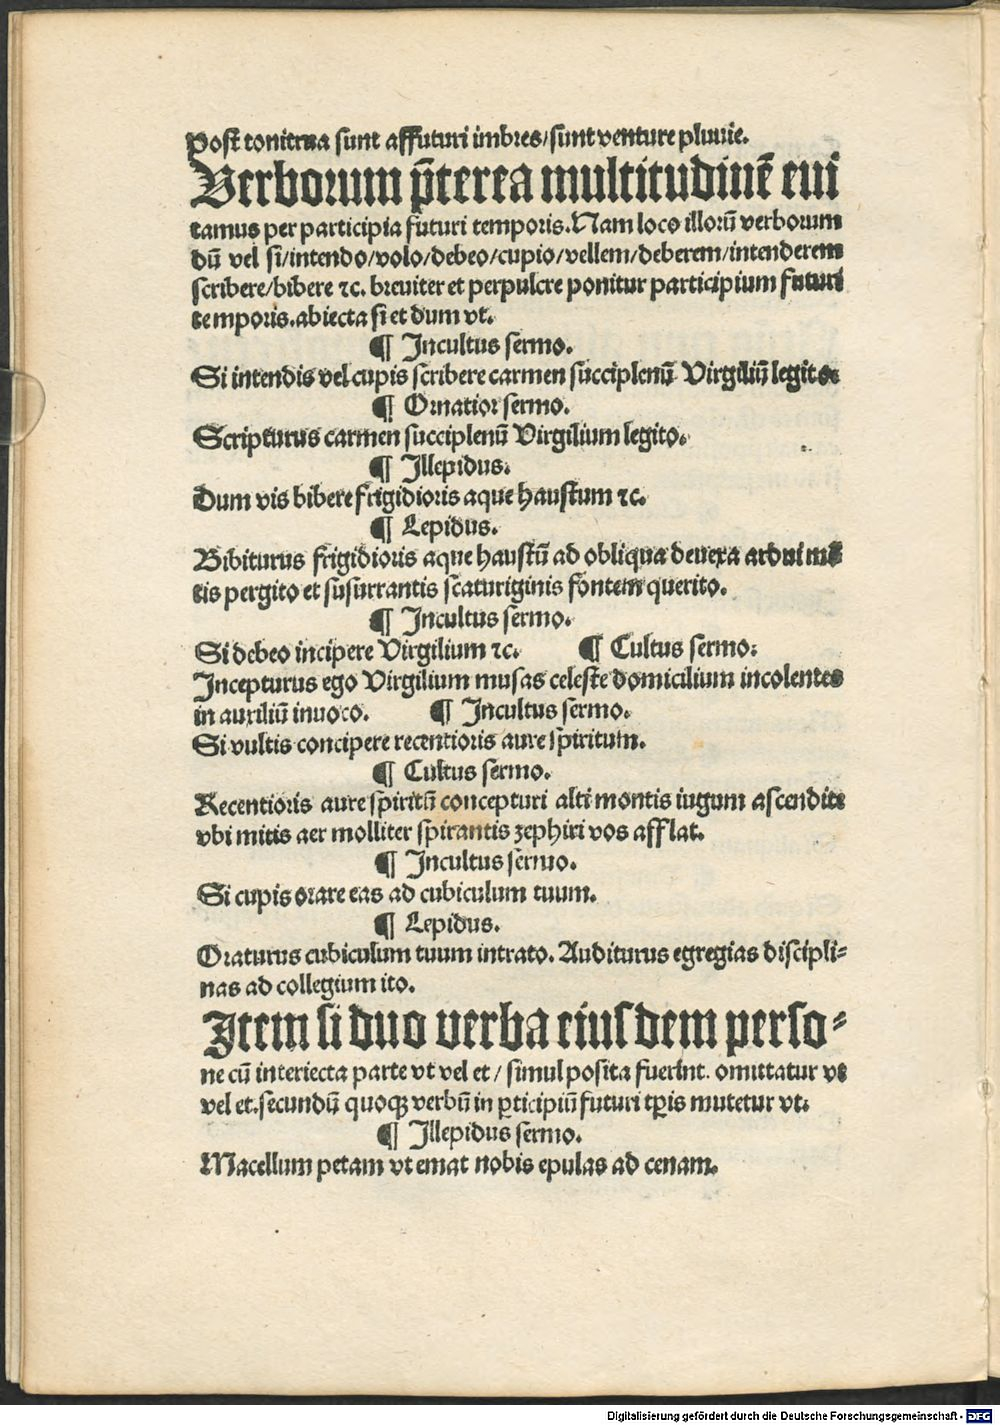 Post tonitrua sunt affuturi imbres/sunt venture pluuie.
Verborum p̄terea multitudinē eui
tamus per participia futuri temporis. Nam loco illorū verborum
dū vel si/intendo/volo/debeo/cupio/vellem/deberem/intenderem
scribere/bibere ⁊c. breuiter et perpulcre ponitur participium futuri
temporis.abiecta si et dum vt.
¶ Incultus sermo.
Si intendis vel cupis scribere carmen succiplenū Virgiliū legito
¶ Ornatior sermo.
Scripturus carmen succiplenū Virgilium legito.
¶ Illepidus.
Dum vis bibere frigidioris aque haustum ⁊c.
¶ Lepidus.
Bibiturus frigidioris aque haustū ad obliqua deuexa ardui mō
tis pergito et susurrantis scaturiginis fontem querito.
¶ Incultus sermo.
Si debeo incipere Virgilium ⁊c. ¶ Cultus sermo:
Incepturus ego Virgilium musas celeste domicilium incolentes
in auxiliū inuoco. ¶ Incultus sermo.
Si vultis concipere recentioris aure spiritum.
¶ Cultus sermo.
Recentioris aure spiritū concepturi alti montis iugum ascendite
vbi mitis aer molliter spirantis zephiri vos afflat.
¶ Incultus sermo.
Si cupis orare eas ad cubiculum tuum.
¶ Lepidus.
Oraturus cubiculum tuum intrato. Auditurus egregias discipli⸗
nas ad collegium ito.
Item si duo verba eiusdem perso⸗
ne cū interiecta parte vt vel et/ simul posita fuerint. omittatur vt
vel et.secundū quoqꝫ verbū in ꝑticipiū futuri tꝑis mutetur vt.
¶ Illepidus sermo.
Macellum petam vt emat nobis epulas ad cenam.
Digitalisierung gefördert durch die Deutsche Forschungsgemeinschaft - DFG